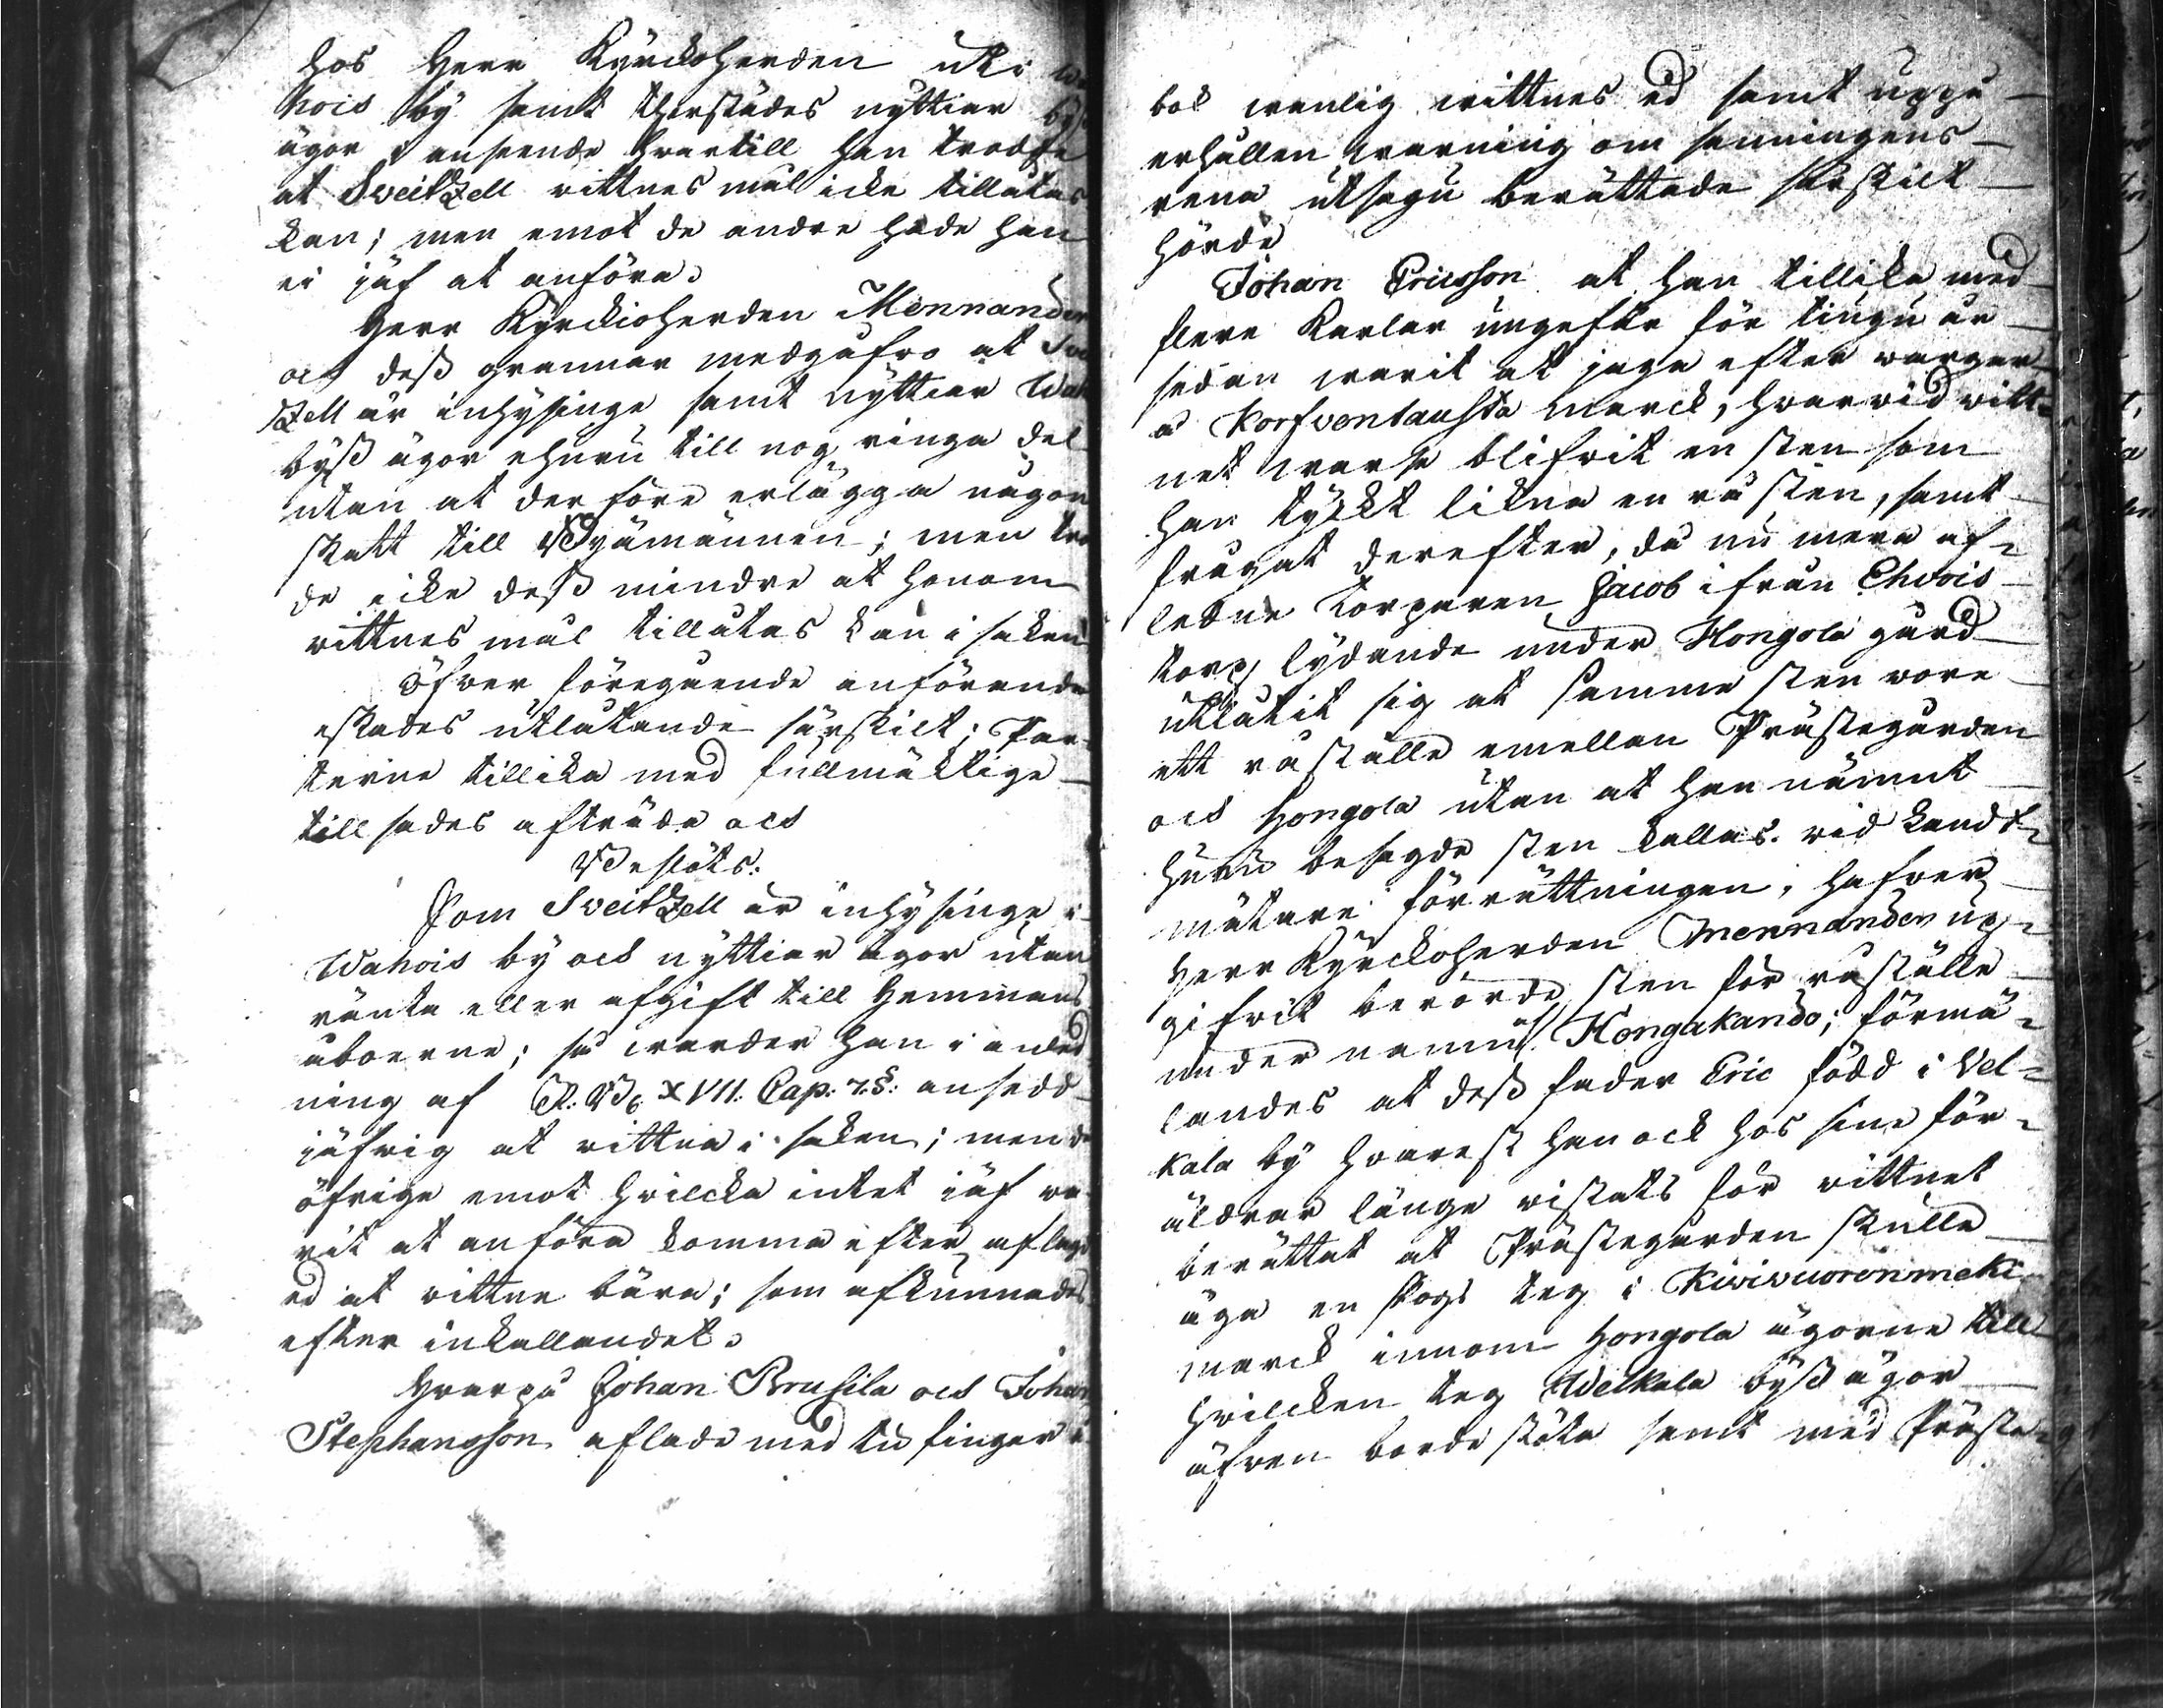 hos Herr Kyrckoherden uti Wa
hois by samt therstädes nyttiar by
ägor i anseende hvartill han trodde
at Sveitzell vittnesmål icke tillåtas
kan; men emot de andre hade han
ei jäf at anföra.
Herr Kyrckioherden Mennander
och dess grannar medgåfvo at Svei
tzell är inhysinge samt nyttiar Wah
byss ägor ehuru till nog ringa del
utan at derföre erlägga någon
skatt till Byämännen; men tro
de icke dess mindre at honom
vittnesmål tillåtas kan i saken
Öfver föregående anförande
eskades utlåtande särskilt; Par-
terne tillika med fullmäktige
till sades afträda och
Beslöts:
Som Sveitzell är inhysinge i
Wahois by och nyttiar ägor utan
ränta eller afgift till Hemmans
åboerne; så warder han i anled
ning af R: B: XVII. Cap: 7. §: ansedd
jäfvig at vittna i saken; men de
öfvrige emot hvilcka intet jäf va
rit at anföra komma efter aflagd
ed at vittna bära; som afkunnades
efter inkallandet.
Hvarpå Johan Brusila och Johan
Stephansson aflade med tu finger å
bok wanlig wittnes ed samt uppå
erhållen warning om sanningens
rena utsago berättade särskilt
hörde
Johan Ericsson at han tillika med
flere Karlar ungefär för tiugu år
sedan warit at jaga efter wargar
å Korfventausta marck, hvarvid vitt-
net warse blifvit en sten som
han tyckt likna en råsten, samt
frågat derefter, då nu mera af-
ledne Torparen Jacob ifrån Ehvois
torp lydande under Hongola gård
utlåtit sig at samma sten vore
ett råställe emellan Prästegården
och Hongola utan at han nämnt
huru besagde sten kallas. vid Landt-
mätare förrättningen, hafver
Herr Kyrckoherden Mennander up-
gifvit berörde sten för råställe
under namn af Hongakando; förmä-
landes at dess fader Eric född i Vel-
kala by hvarest han ock hos sine för-
äldrar länge vistats för vittnet
berättat at Prästegården skulle
äga en skogs teg i Kivivuorenmeki
marck innom Hongola ägorne till
hvilcken teg Welkala byss ägor
äfven borde stöta samt med Präste-